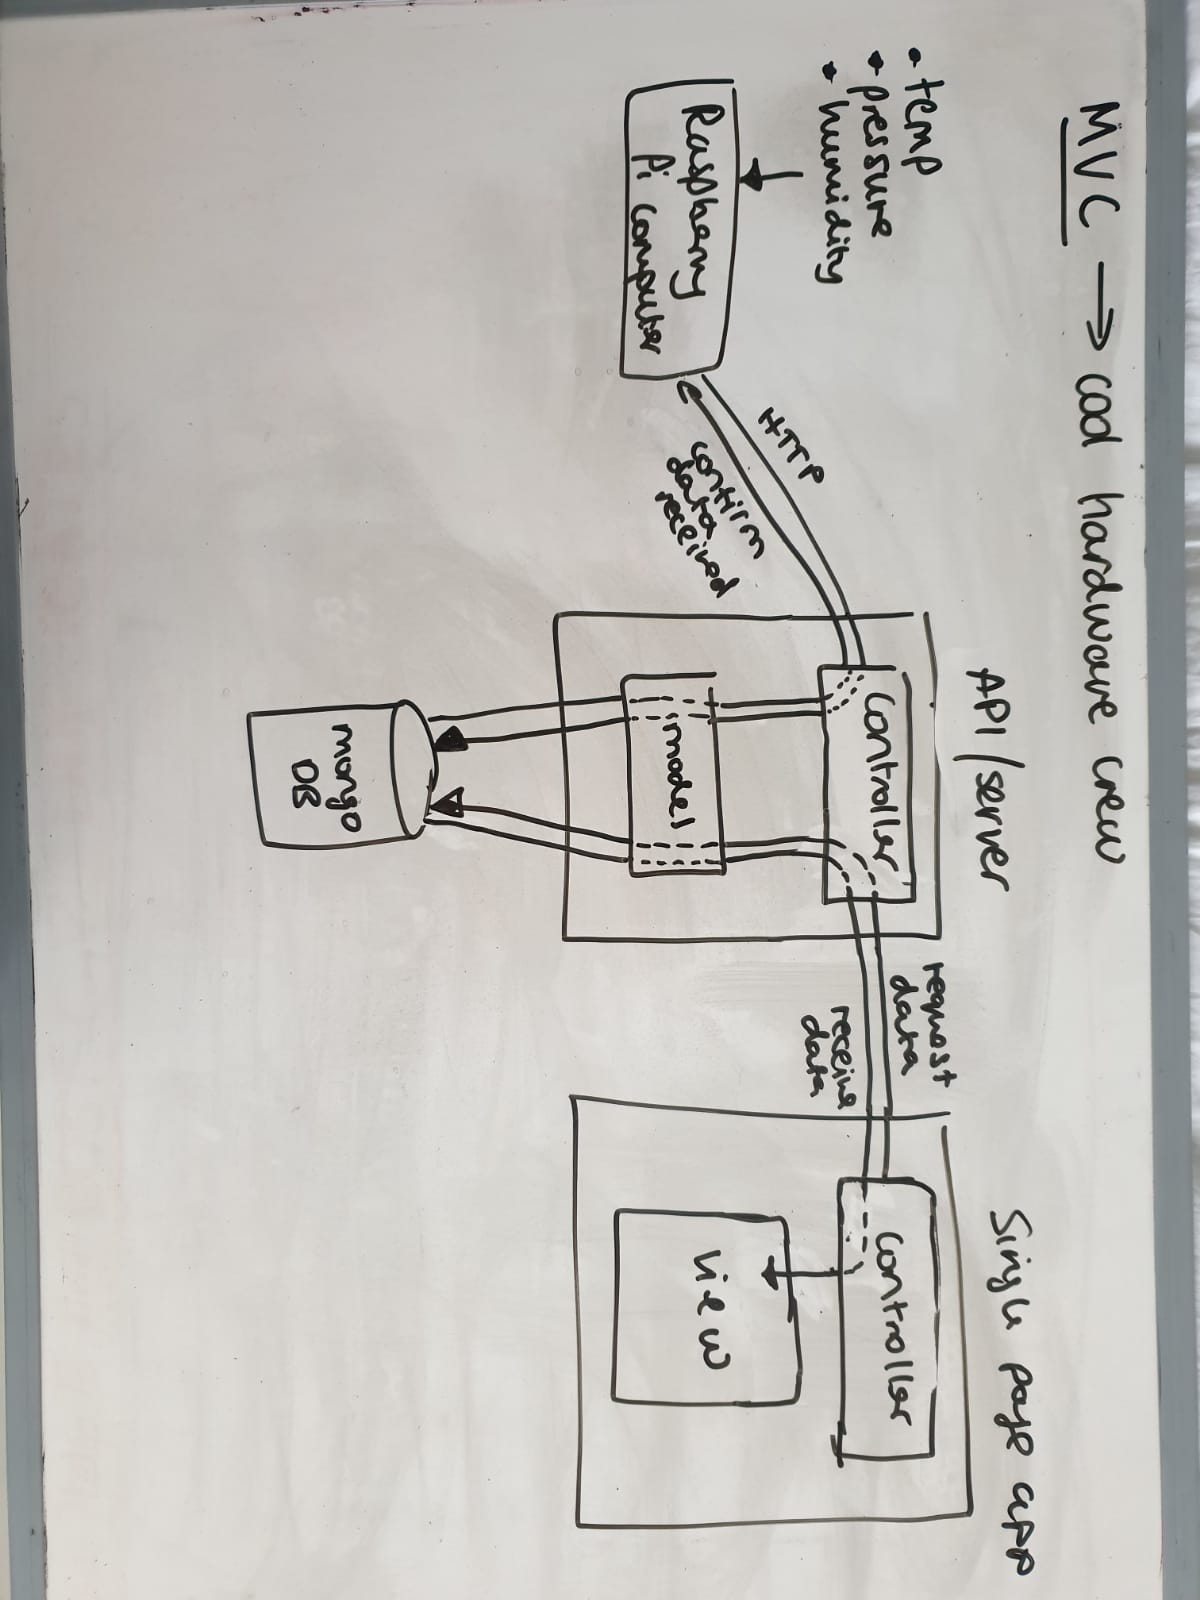 MVC → cool hardware crew
• temp
• pressure
• humidity
Raspberry
Pi computer
HTTP
confirm
data
received
API/server
controller
model
mongo
DB
request
data
receive
data
Single page app
controller
View